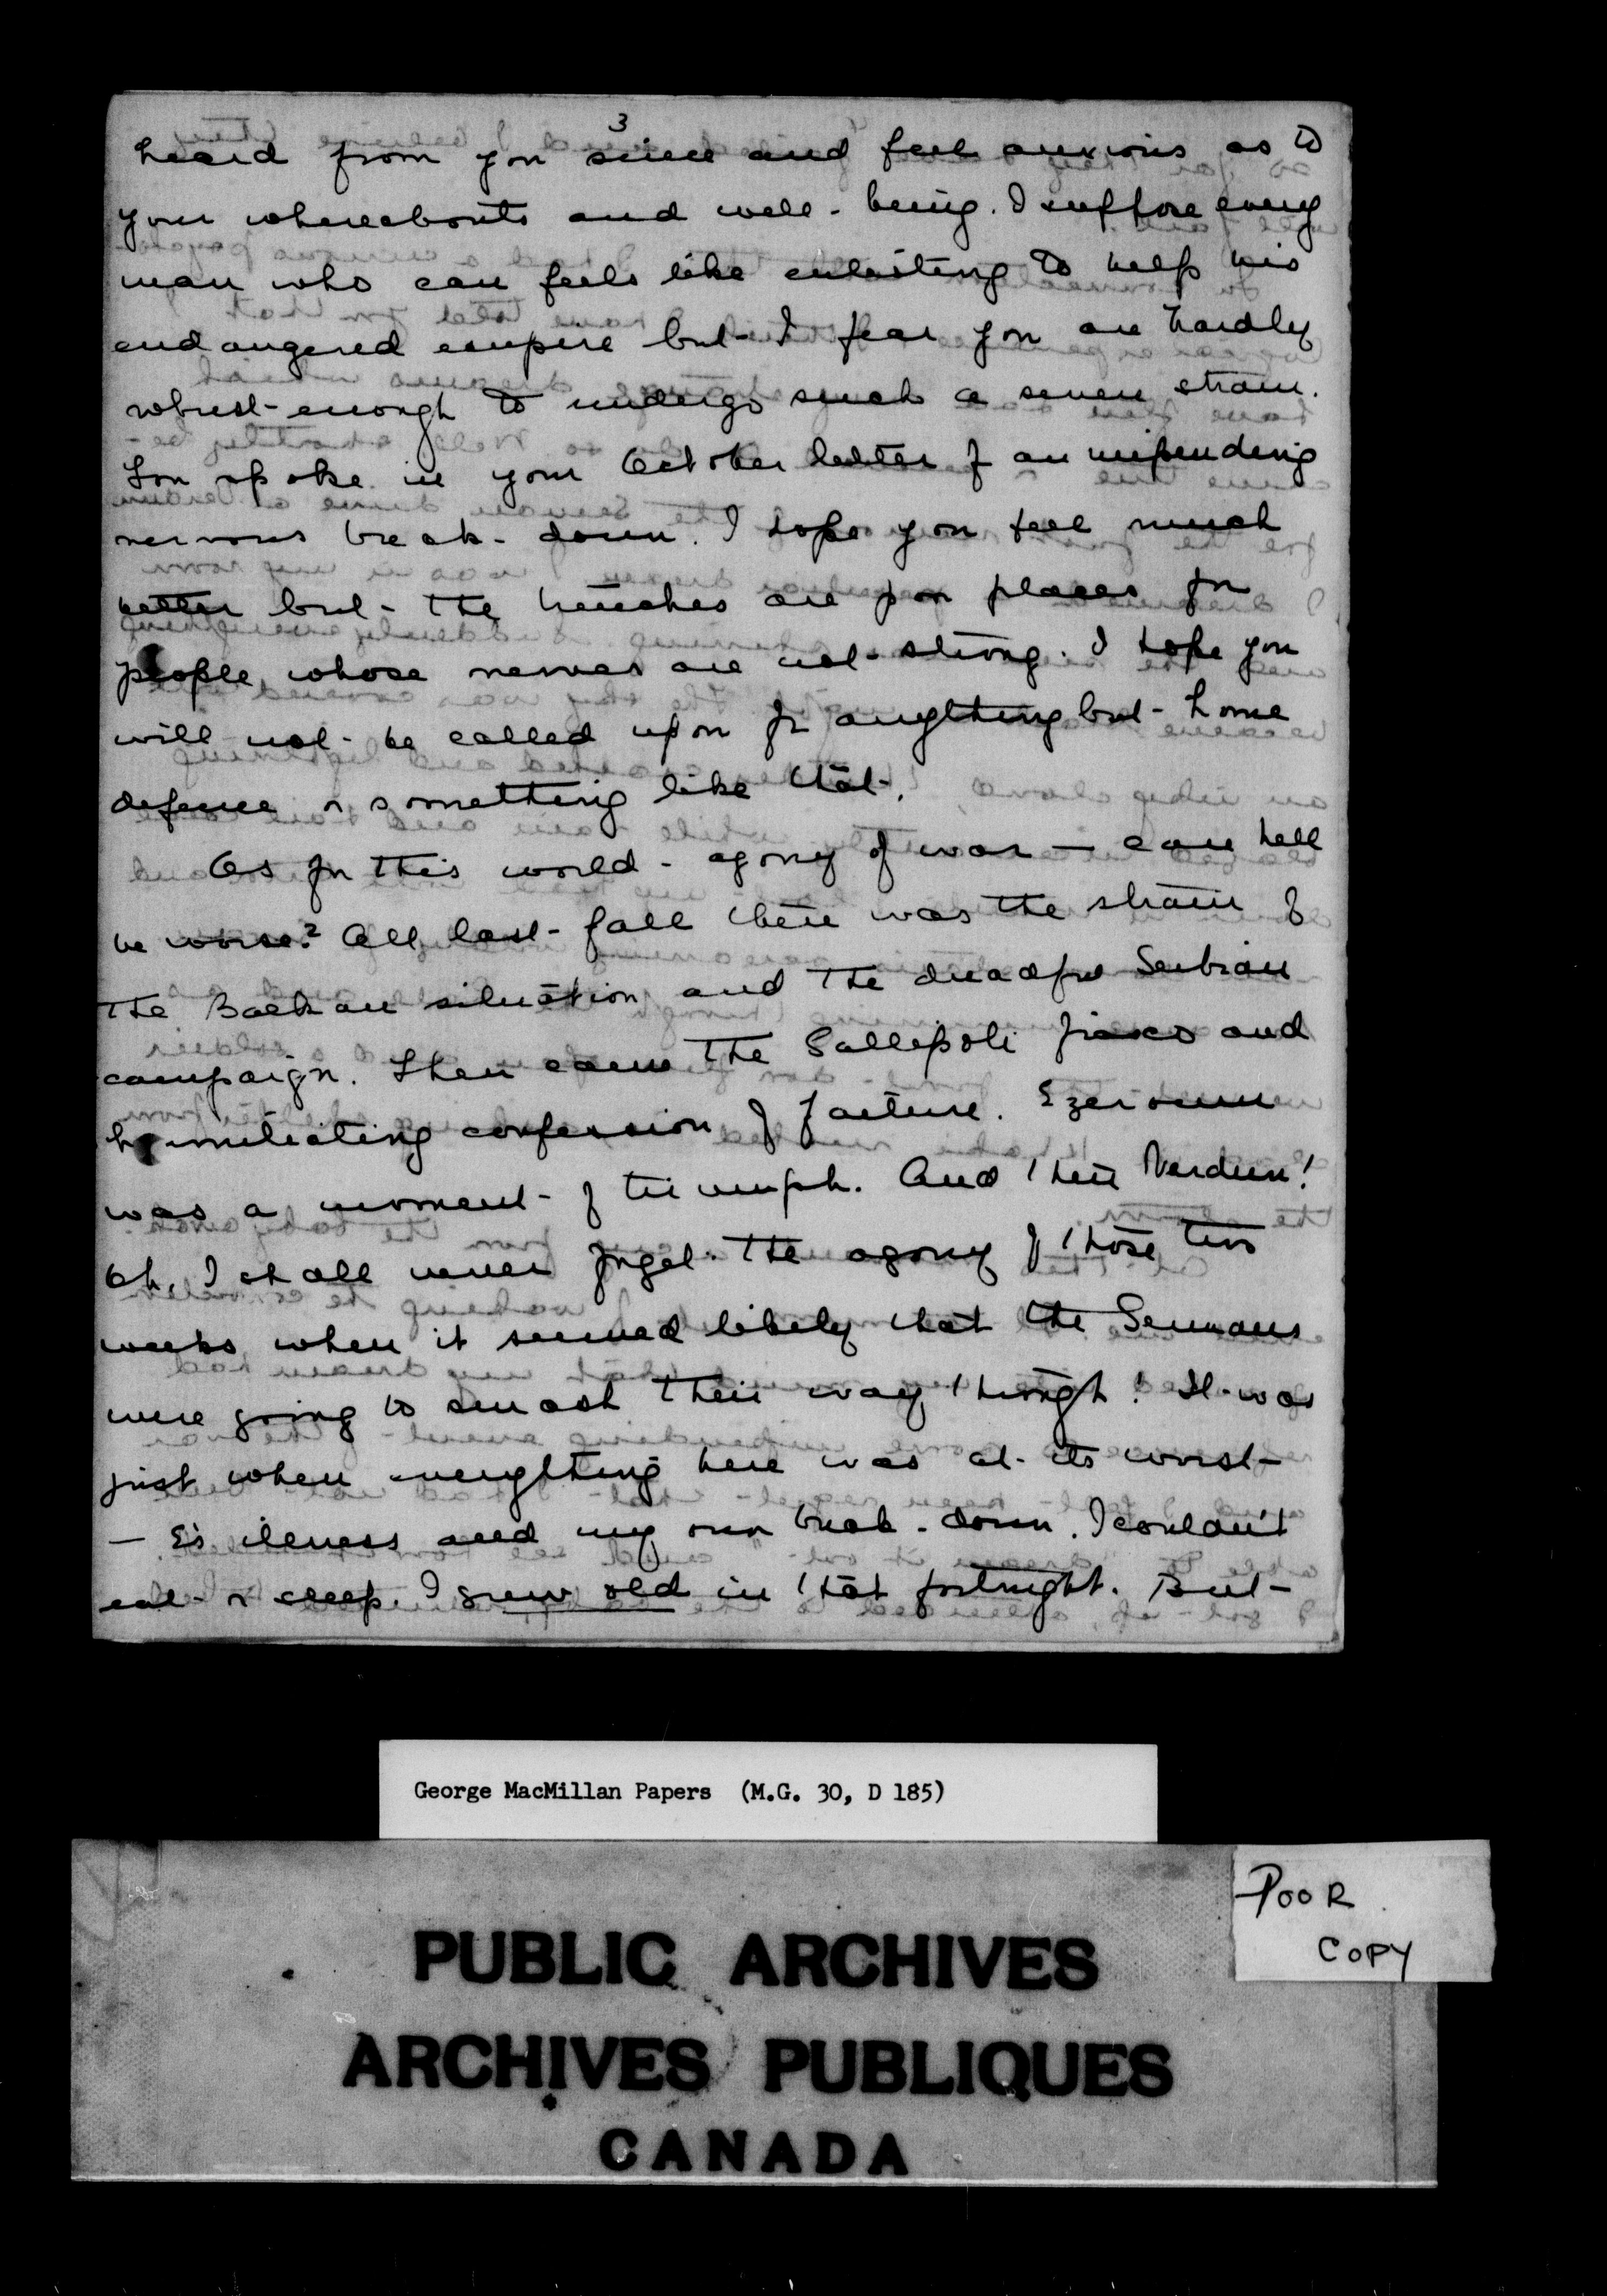 3
heard from you since and feel anxious as to
your whereabouts and well-being. I suppose every
man who can feels like enlisting to help his
endangered empire but I fear you are hardly
robust enough to undergo such a severe strain.
You spoke in your October letter of an impending
nervous break-down. I hope you feel much
better but the trenches are poor places for
people whose nerves are not strong. I hope you
will not be called upon for anything but home
defence or something like that.
As for this world-agony of war — can hell
be worse? All last fall there was the strain of
the Balkan situation and the dreadful Serbian
campaign. Then came the Gallipoli fiasco and
humiliating confession of failure. Ezeroum
was a moment of triumph. And then Verdun!
Oh, I shall never forget the agony of those two
weeks when it seemed likely that the Germans
were going to smash their way through! It was
just when everything here was at its worst
— E's illness and my own break-down. I couldn't
eat or sleep. I grew old in that fortnight. But
George MacMillan Papers (M.G. 30, D 185)
POOR
COPY
PUBLIC ARCHIVES
ARCHIVES PUBLIQUES
CANADA